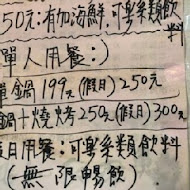 50元:有加海鮮.可樂類飲
單人用餐:)
鍋 199元(假日) 250元
鍋+燒烤 250元(假日) 300元
用餐:可樂類飲料
(無限暢飲)